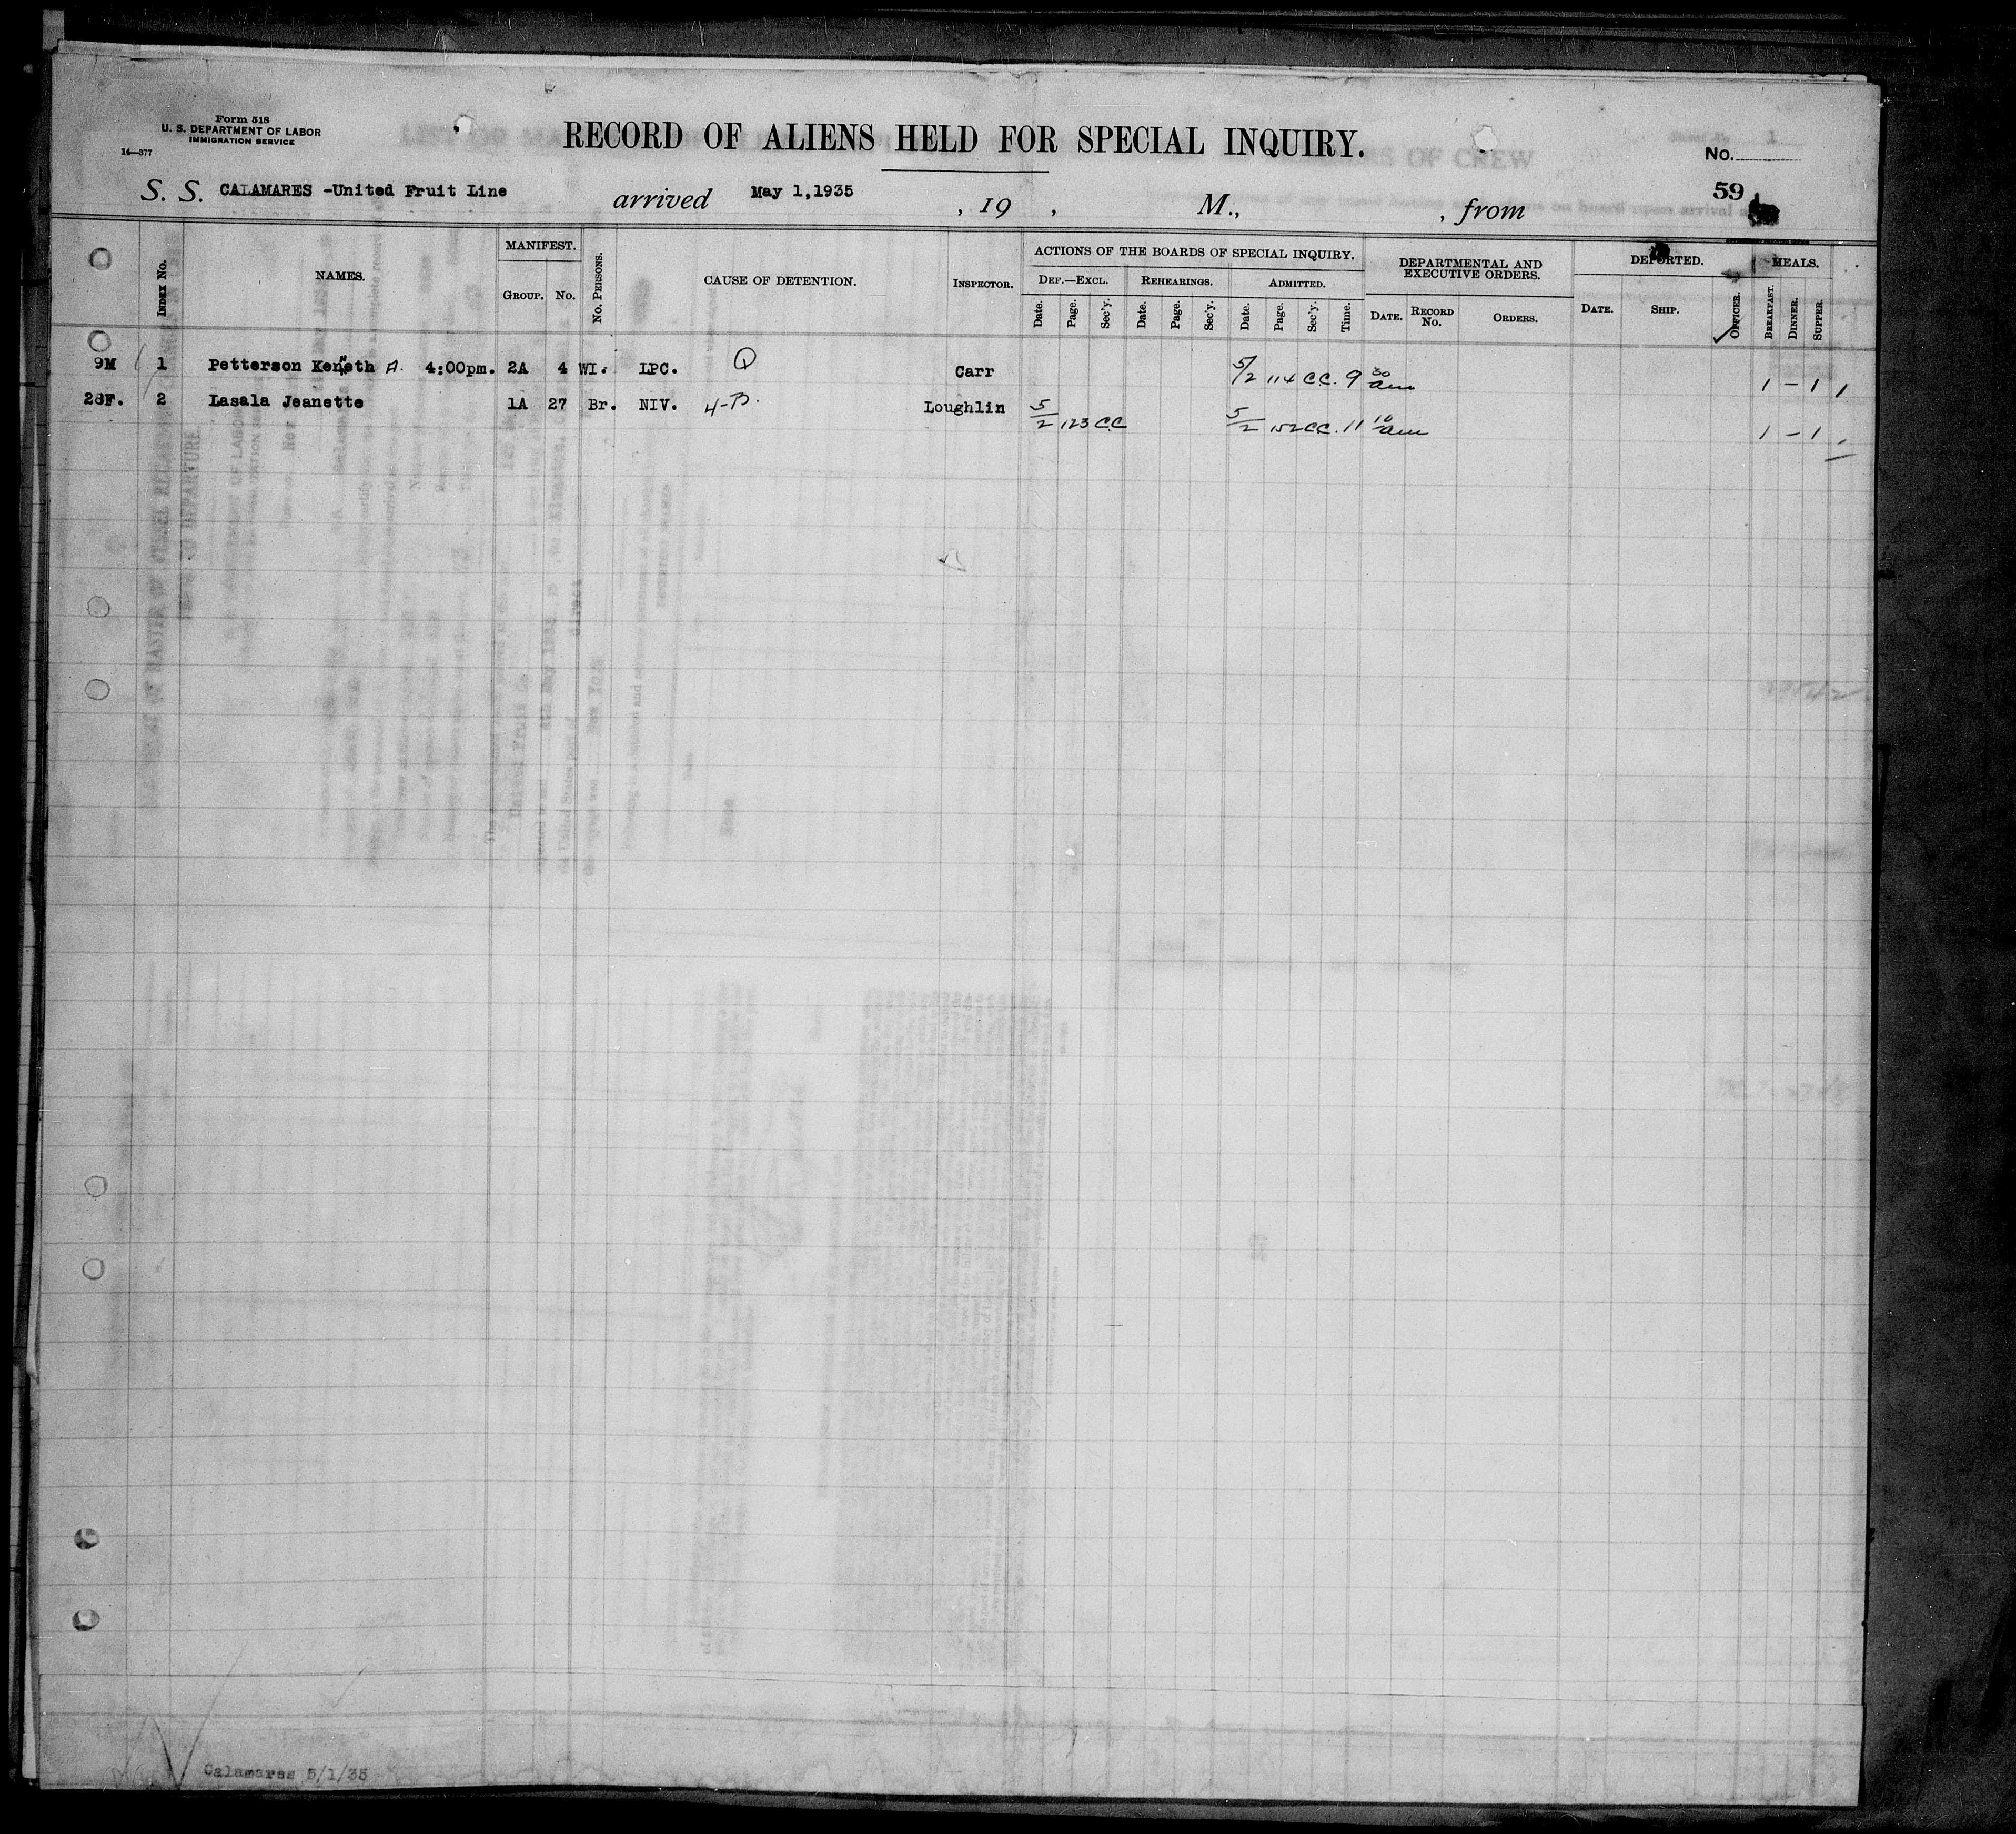 Form 518
U. S. DEPARTMENT OF LABOR
IMMIGRATION SERVICE
14—377
RECORD OF ALIENS HELD FOR SPECIAL INQUIRY.
No.
59
S. S. CALAMARES -United Fruit Line arrived May 1,1935 , 19 , M., , from
INDEX No.
NAMES.
MANIFEST.
GROUP. No.
No. PERSONS.
CAUSE OF DETENTION.
INSPECTOR.
ACTIONS OF THE BOARDS OF SPECIAL INQUIRY.
DEF.—EXCL. REHEARINGS. ADMITTED.
Date. Page. Sec'y. Date. Page. Sec'y. Date. Page. Sec'y. Time.
DEPARTMENTAL AND
EXECUTIVE ORDERS.
DATE. RECORD No. ORDERS.
DEPORTED.
DATE. SHIP. OFFICER.
MEALS.
BREAKFAST. DINNER. SUPPER.
9M 1 Petterson Kenneth A. 4:00pm. 2A 4 WI. LPC. Q Carr 5/2 114 C.C. 9 30 am 1 – 1 1
28F. 2 Lasala Jeanette 1A 27 Br. NIV. 4-B. Loughlin 5/2 123 C.C 5/2 152 C.C. 11 10 am 1 – 1
Calamares 5/1/35